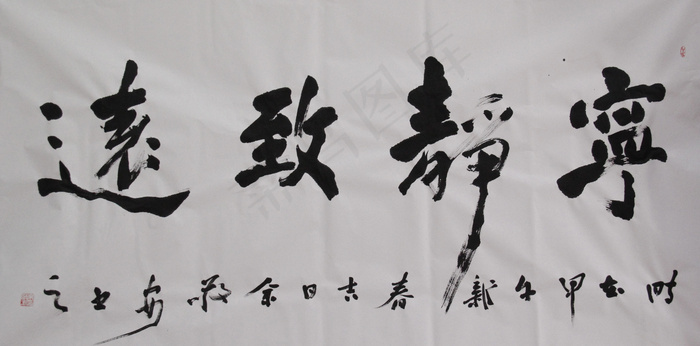 寧靜致遠
時在甲午新春吉日余敬安書之